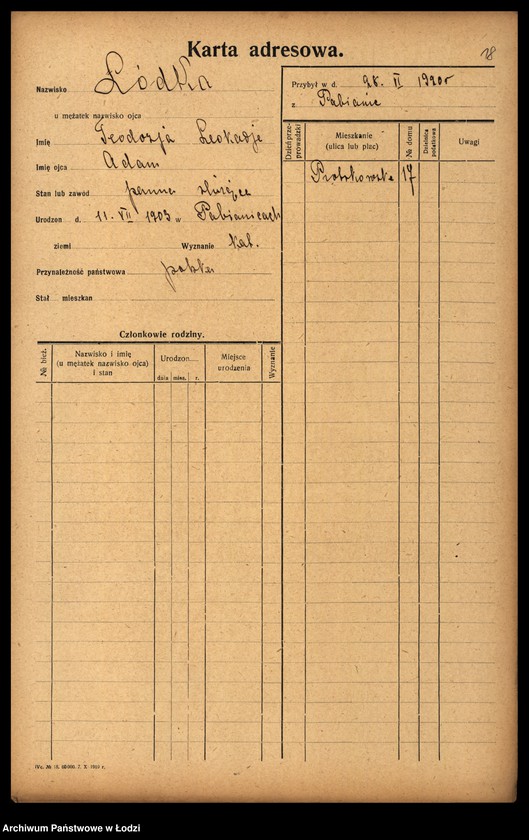 Karta adresowa.
18
Nazwisko Łódka
u mężatek nazwisko ojca
Imię Teodozja Leokadja
Imię ojca Adam
Stan lub zawód panna służąca
Urodzon d. 11. VII 1903 w Pabianicach
ziemi Wyznanie kat.
Przynależność państwowa polska
Stał mieszkan
Przybył w d. 26. II 1920 r
z Pabianic
Dzień przeprowadzki
Mieszkanie
(ulica lub plac)
№ domu
Dzielnica podatkowa
Uwagi
Piotrkowska 17
Członkowie rodziny.
№ bież.
Nazwisko i imię
(u mężatek nazwisko ojca)
i stan
Urodzon
dnia mies. r.
Miejsce
urodzenia
Wyznanie
Archiwum Państwowe w Łodzi